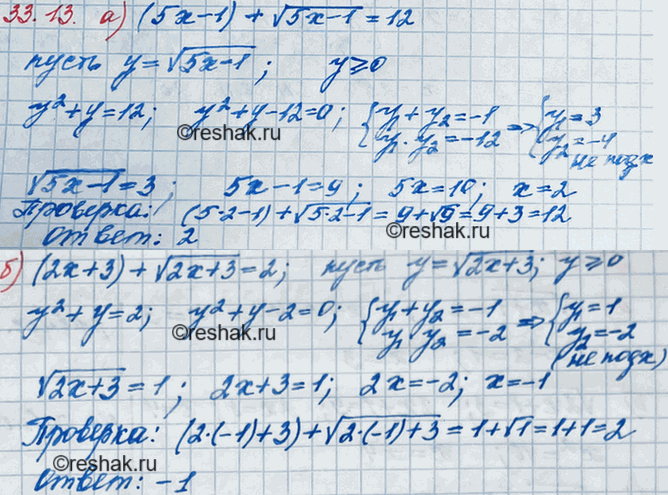 33.13. а) (5x-1) + √(5x-1) = 12
пусть y = √(5x-1); y ≥ 0
y² + y = 12; y² + y - 12 = 0; { y₁ + y₂ = -1 ⇒ { y₁ = 3
y₁ · y₂ = -12 y₂ = -4
не подх
©reshak.ru
√(5x-1) = 3; 5x - 1 = 9; 5x = 10; x = 2
Проверка: (5·2-1) + √(5·2-1) = 9 + √9 = 9 + 3 = 12
Ответ: 2
©reshak.ru
б) (2x+3) + √(2x+3) = 2; пусть y = √(2x+3); y ≥ 0
y² + y = 2; y² + y - 2 = 0; { y₁ + y₂ = -1 ⇒ { y₁ = 1
y₁ y₂ = -2 y₂ = -2
(не подх)
©reshak.ru
√(2x+3) = 1; 2x + 3 = 1; 2x = -2; x = -1
Проверка: (2·(-1)+3) + √(2·(-1)+3) = 1 + √1 = 1 + 1 = 2
©reshak.ru
Ответ: -1